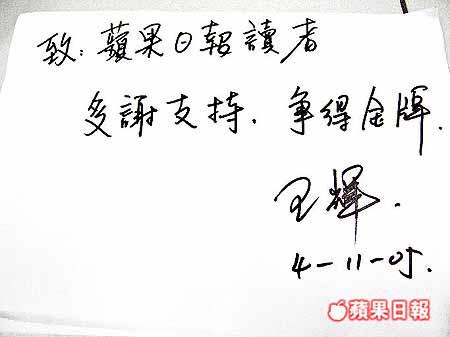 致:蘋果日報讀者
多謝支持.爭得金牌.
王輝.
4-11-05.
蘋果日報